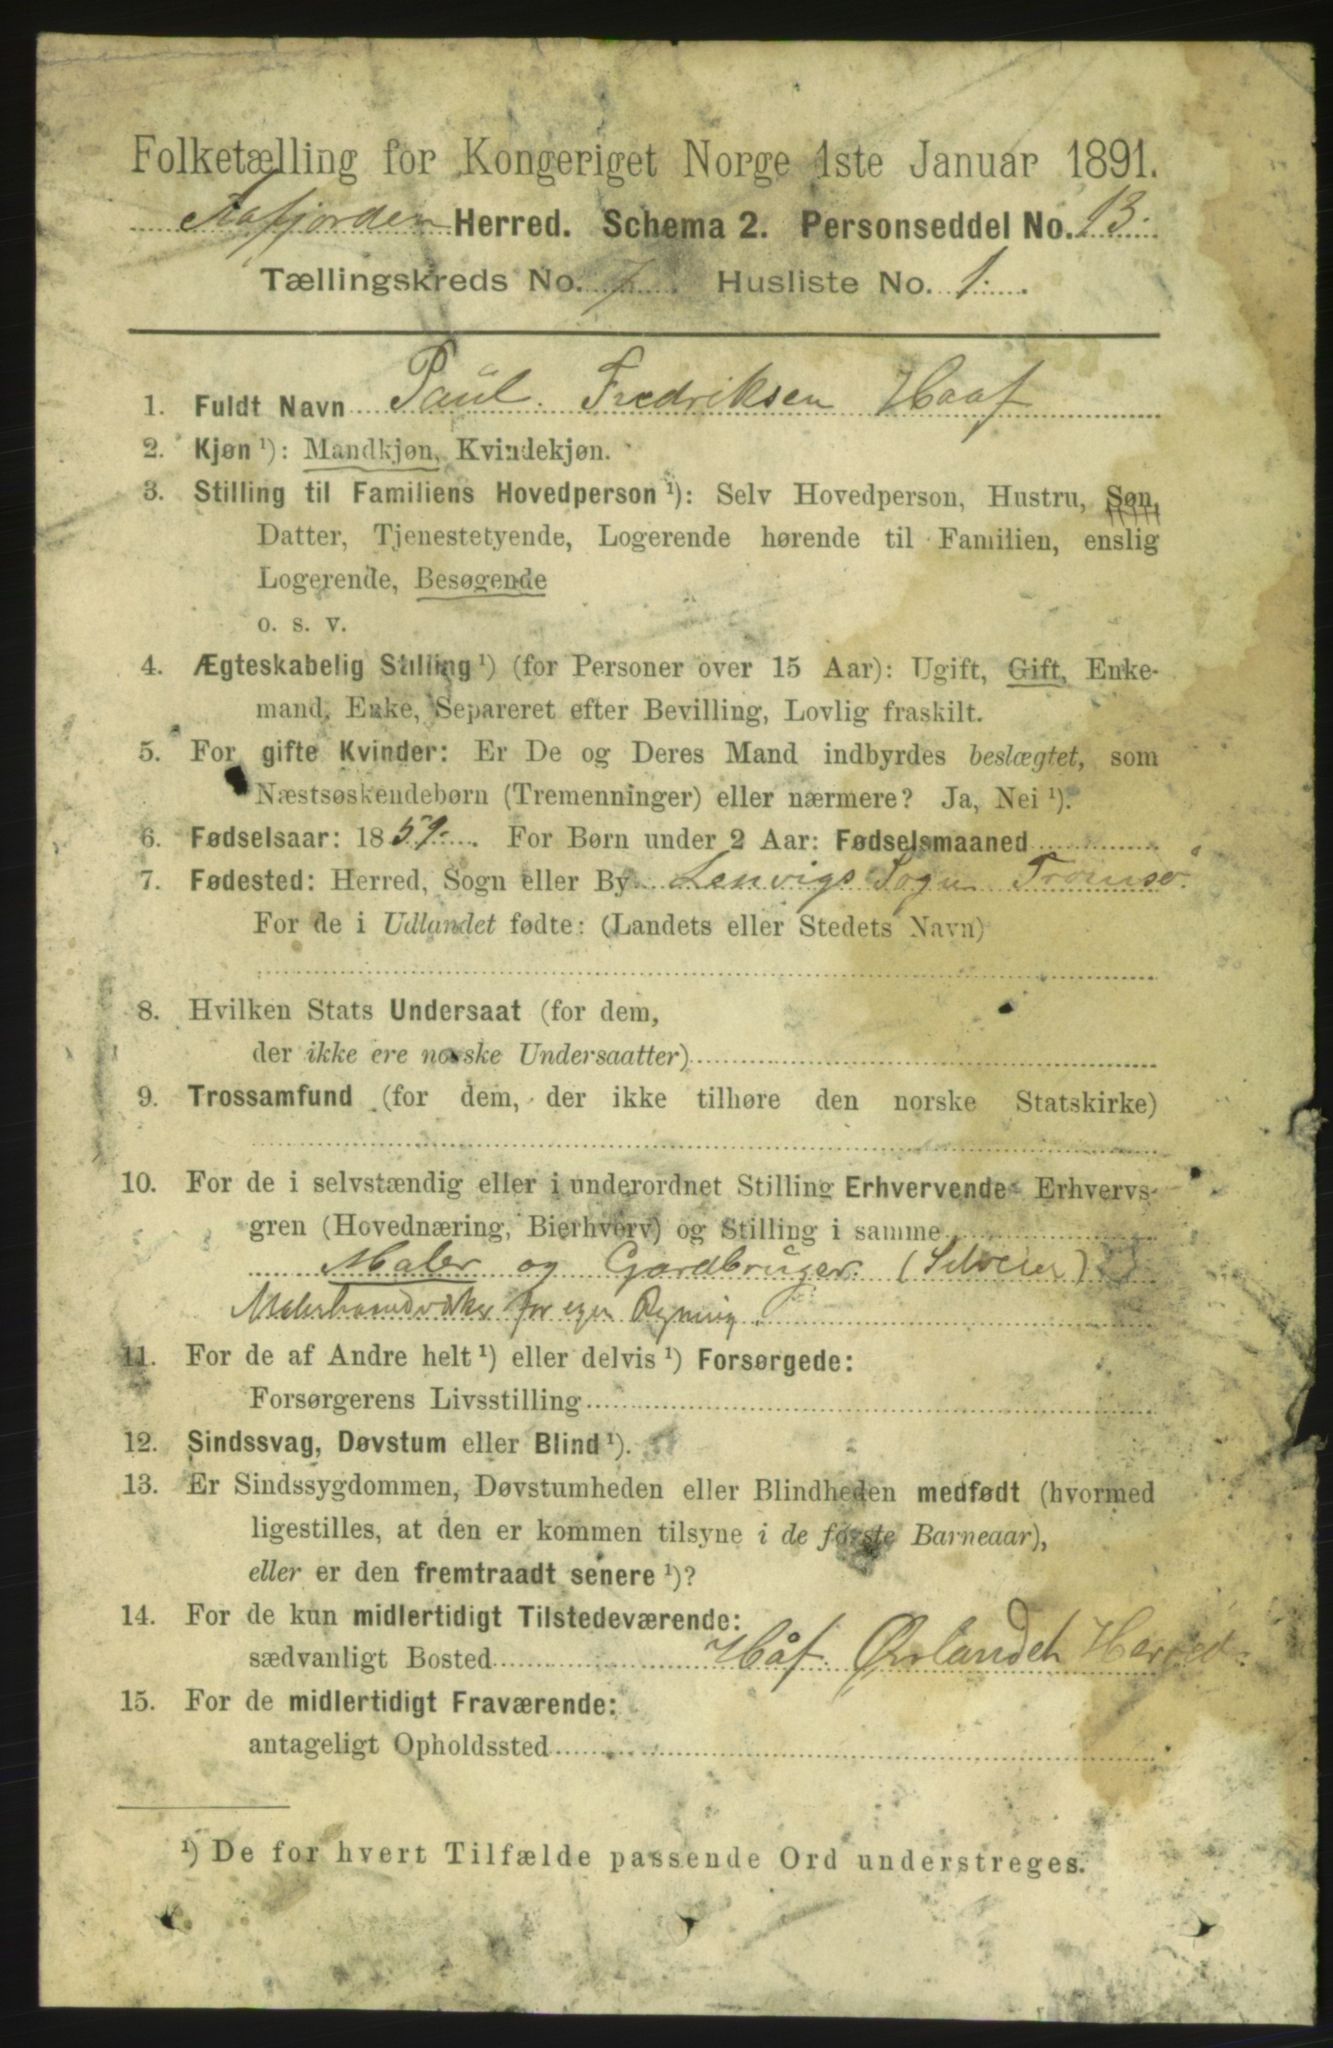 Folketælling for Kongeriget Norge 1ste Januar 1891.
Aafjorden Herred. Schema 2. Personseddel No. 13.
Tællingskreds No. 7. Husliste No. 1.
1. Fuldt Navn Paul Fredriksen Haaf
2. Kjøn ¹): Mandkjøn, Kvindekjøn.
3. Stilling til Familiens Hovedperson ¹): Selv Hovedperson, Hustru, Søn,
Datter, Tjenestetyende, Logerende hørende til Familien, enslig
Logerende, Besøgende
o. s. v.
4. Ægteskabelig Stilling ¹) (for Personer over 15 Aar): Ugift, Gift, Enke-
mand, Enke, Separeret efter Bevilling, Lovlig fraskilt.
5. For gifte Kvinder: Er De og Deres Mand indbyrdes beslægtet, som
Næstsøskendebørn (Tremenninger) eller nærmere? Ja, Nei ¹).
6. Fødselsaar: 1859. For Børn under 2 Aar: Fødselsmaaned
7. Fødested: Herred, Sogn eller By Lenvigs Sogn Tromsø.
For de i Udlandet fødte: (Landets eller Stedets Navn)
8. Hvilken Stats Undersaat (for dem,
der ikke ere norske Undersaatter)
9. Trossamfund (for dem, der ikke tilhøre den norske Statskirke)
10. For de i selvstændig eller i underordnet Stilling Erhvervende Erhvervs-
gren (Hovednæring, Bierhverv) og Stilling i samme
Maler og Gardbruger. (Selveier)
Malerhaandværker for egen Regning.
11. For de af Andre helt ¹) eller delvis ¹) Forsørgede:
Forsørgerens Livsstilling
12. Sindssvag, Døvstum eller Blind ¹).
13. Er Sindssygdommen, Døvstumheden eller Blindheden medfødt (hvormed
ligestilles, at den er kommen tilsyne i de første Barneaar),
eller er den fremtraadt senere ¹)?
14. For de kun midlertidigt Tilstedeværende:
sædvanligt Bosted Håf Ørlandet Herred.
15. For de midlertidigt Fraværende:
antageligt Opholdssted
¹) De for hvert Tilfælde passende Ord understreges.